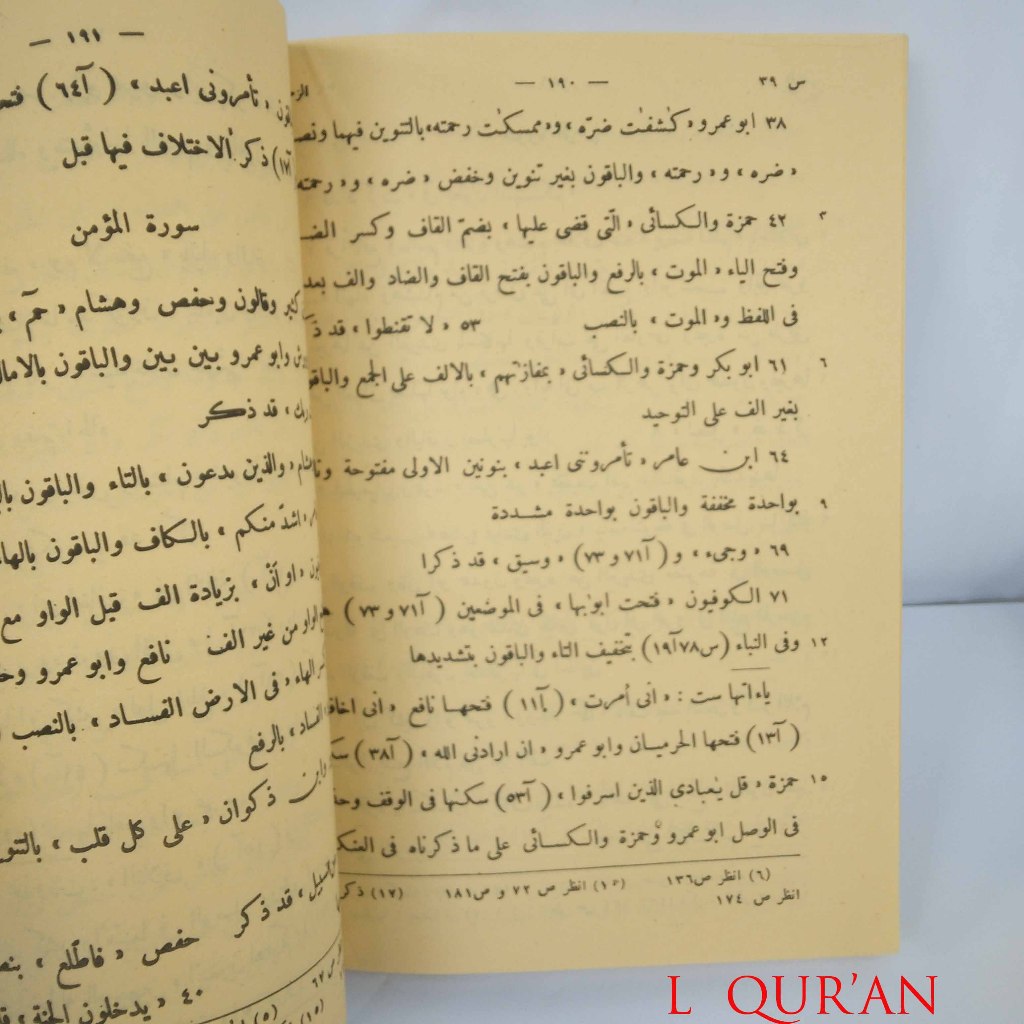 س ٣٩ — ١٩٠ —
٣٨ ابو عمرو « كٰشفٰت ضرّه » و « ممسكٰت رحمته » بالتنوين فيهما ونصب
« ضره » و « رحمته » والباقون بغير تنوين وخفض « ضره » و « رحمته
٣ ٤٢ حمزة والكسائى « الّتى قضى عليها » بضمّ القاف وكسر الضـ
وفتح الياء « الموت » بالرفع والباقون بفتح القاف والضاد والف بعد
فى اللفظ و « الموت » بالنصب ٥٣ « لا تقنطوا » قد ذ
٦ ٦١ ابو بكر وحمزة والكسائى « بمفازتهم » بالالف على الجمع والباقو
بغير الف على التوحيد
٦٤ ابن عامر « تأمروننى اعبد » بنونين الاولى مفتوحة
٩ بواحدة مخففة والباقون بواحدة مشددة
٦٩ « وجىء » و ( آ٧١ و ٧٣ ) « وسيق » قد ذكرا
٧١ الكوفيون « فتحت ابوٰبها » فى الموضعين ( آ٧١ و ٧٣ )
١٢ وفى النباء (س٧٨آ١٩) بتخفيف التاء والباقون بتشديدها
ياءاتها ست : « انى أمرت » ( آ١١ ) فتحها نافع « انى اخاف
( آ١٣ ) فتحها الحرميان وابو عمرو « ان ارادنى الله » ( آ٣٨ ) سكـ
١٥ حمزة « قل يٰعبادى الذين اسرفوا » ( آ٥٣ ) سكنها فى الوقف وحذ
فى الوصل ابو عمرو وحمزة والكسائى على ما ذكرناه فى العنكـ
(٦) انظر ص١٣٦ (١٥) انظر ص ٧٢ و ص١٨١ (١٧) ذكر
انظر ص ١٧٤
— ١٩١ —
« تأمرونى اعبد » ( آ٦٤ ) فتحـ
ذكر الاختلاف فيها قبل
سورة المؤمن
وقالون وحفص وهشام « حمٓ »
وابو عمرو بين بين والباقون بالامالـ
قد ذكر
« والذين يدعون » بالتاء والباقون
« اشدّ منكم » بالكاف والباقون بالهاء
« او أنْ » بزيادة الف قبل الواو مع
الواو من غير الف نافع وابو عمرو وحـ
الهاء « فى الارض الفساد » بالنصب
بالرفع
وابن ذكوان « على كل قلب » بالتنو
السبيل » قد ذكر حفص « فاطّلع » بنصـ
٤٠ « يدخلون الجنة »
L QUR'AN